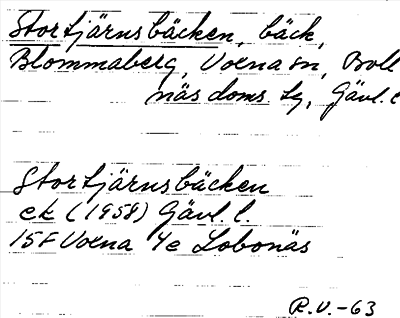 Stortjärnsbäcken, bäck,
Blommaberg, Voxna sn, Boll
näs doms. tg, Gävl. l
Stortjärnsbäcken
ek (1958) Gävl. l.
15F Voxna 4e Lobonäs
R.V.-63